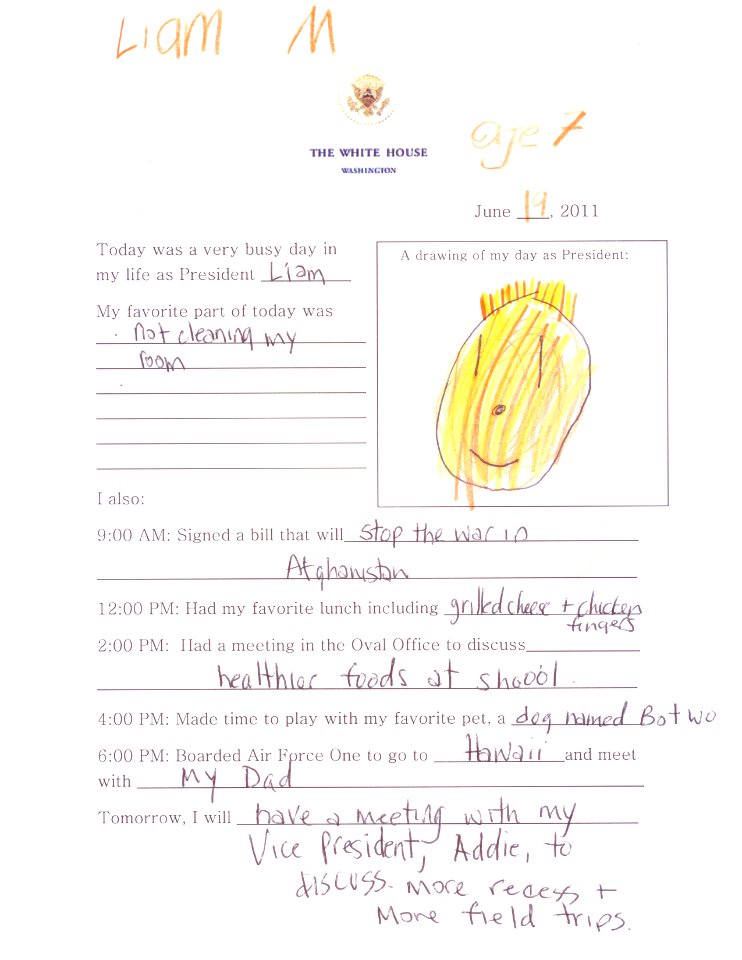 Liam M
THE WHITE HOUSE
WASHINGTON
age 7
June 19, 2011
Today was a very busy day in
my life as President Liam
My favorite part of today was
not cleaning my
room
A drawing of my day as President:
I also:
9:00 AM: Signed a bill that will stop the war in
Afghanistan
12:00 PM: Had my favorite lunch including grilled cheese + chicken
fingers
2:00 PM: Had a meeting in the Oval Office to discuss
healthier foods at shcool.
4:00 PM: Made time to play with my favorite pet, a dog named Botwo
6:00 PM: Boarded Air Force One to go to Hawaii and meet
with My Dad
Tomorrow, I will have a meeting with my
Vice President, Addie, to
discuss more recess +
More field trips.